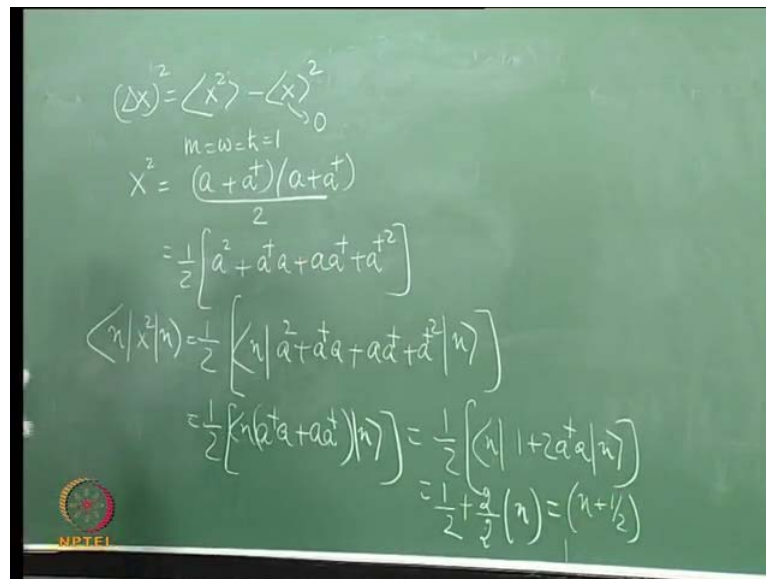 (Δx)² = ⟨x²⟩ - ⟨x⟩² → 0
m=ω=ħ=1
x² = (a + a†)(a + a†) / 2
= 1/2 [a² + a†a + aa† + a†²]
⟨n|x²|n⟩ = 1/2 [⟨n|a² + a†a + aa† + a†²|n⟩]
= 1/2 [⟨n(a†a + aa†)|n⟩] = 1/2 [⟨n|1 + 2a†a|n⟩]
= 1/2 + 2/2 (n) = (n + 1/2)
NPTEL